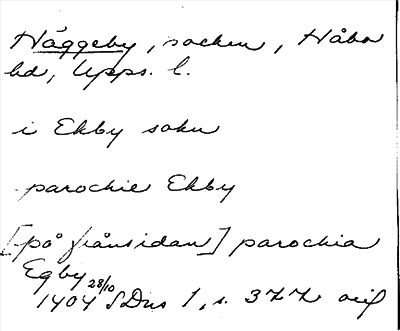 Häggeby, socken, Håbo
hd, Upps. l.
i Ekby sokn
parochie Ekby
[på frånsidan] parochia
Egby
28/10 1404 SDns 1, s. 377 orig